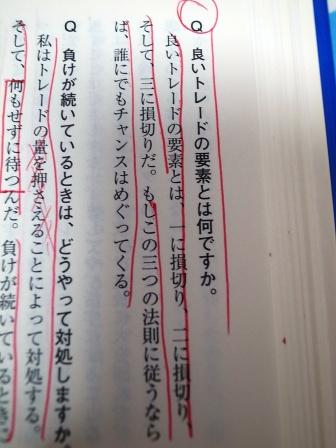 Q 良いトレードの要素とは何ですか。
良いトレードの要素とは、一に損切り、二に損切り、
そして、三に損切りだ。もしこの三つの法則に従うなら
ば、誰にでもチャンスはめぐってくる。
Q 負けが続いているときは、どうやって対処しますか。
私はトレードの量を押さえることによって対処する。
そして、何もせずに待つんだ。負けが続いているとき、